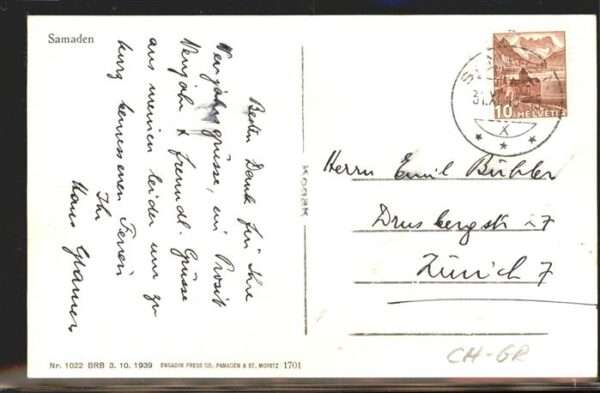 Samaden
Besten Dank für Ihre
Neujahrsgrüsse, ein Prosit
Neujahr & freundl. Grüsse
aus meinen leider nur zu
kurz bemessenen Ferien
Ihr
Hans
KODAK
10 HELVETIA
31.XII
X
Herrn Emil Bühler
Drusbergstr. 17
Zürich 7
CH-GR
Nr. 1022 BRB 3. 10. 1939 ENGADIN PRESS CO., SAMADEN & ST. MORITZ 1701